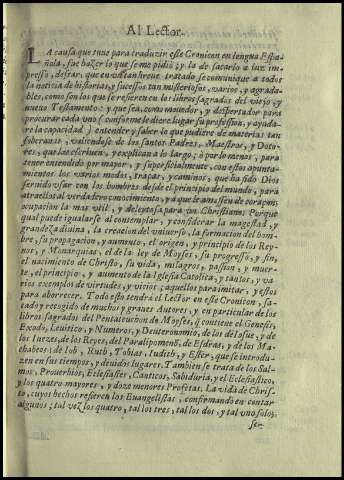 Al Lector.
LA causa que tuue para traduzir este Cronicon en lengua Espa-
ñola, fue hazer lo que se me pidio; y la de sacarlo a luz im-
presso, desear, que en vn tan breue tratado se comunique a todos
la noticia de historias, y sucessos tan misteriosos, varios, y agrada-
bles, como son los que se refieren en los libros sagrados del viejo, y
nueuo Testamento: y que sea, como dedo, y despertador para
procurar cada vno (conforme le diere lugar su profession, y ayuda-
re la capacidad) entender y saber lo que pudiere de materias tan
soberanas, valiendose de los santos Padres, Maestros, y Doto-
res, que las escriuen, y explican a lo largo; o por lo menos, para
tener entendido por mayor, y superficialmente, con estos apunta-
mientos los varios modos, traças, y caminos, que ha sido Dios
seruido vsar con los hombres desde el principio del mundo, para
atraerlos al verdadero conocimiento, y a que le amassen de coraçon;
ocupacion la mas vtil, y deleytosa para vn Christiano: Porque
qual puede igualarse al contemplar, y considerar la magestad, y
grandeza diuina, la creacion del vniuerso, la formacion del hom-
bre, su propagacion, y aumento, el origen, y principio de los Rey-
nos, y Monarquias, el de la ley de Moyses, su progresso, y fin,
el nacimiento de Christo, su vida, milagros, passion, y muer-
te, el principio, y aumento de la Iglesia Catolica, y tantos, y va-
rios exemplos de virtudes, y vicios; aquellos para imitar, y estos
para aborrecer. Todo esto tendrà el Lector en este Cronicon, sa-
cado y recogido de muchos y graues Autores, y en particular de los
libros sagrados del Pentateuchon de Moyses, q̃ contiene el Genesis,
Exodo, Leuitico, y Numeros, y Deuteronomio, de los de Iosue, y de
los Iuezes, de los Reyes, del Paralipomenõ, de Esdras, y de los Ma-
chabeos; de Iob, Ruth, Tobias, Iudith, y Ester, que se introdu-
zen en sus tiempos, y deuidos lugares. Tambien se trata de los Sal-
mos, Prouerbios, Eclesiastes, Canticos, Sabiduria, y el Eclesiastico,
y los quatro mayores, y doze menores Profetas. La vida de Chris-
to, cuyos hechos refieren los Euangelistas, confirmando en contar
algunos; tal vez los quatro, tal los tres, tal los dos, y tal vno solo;
se